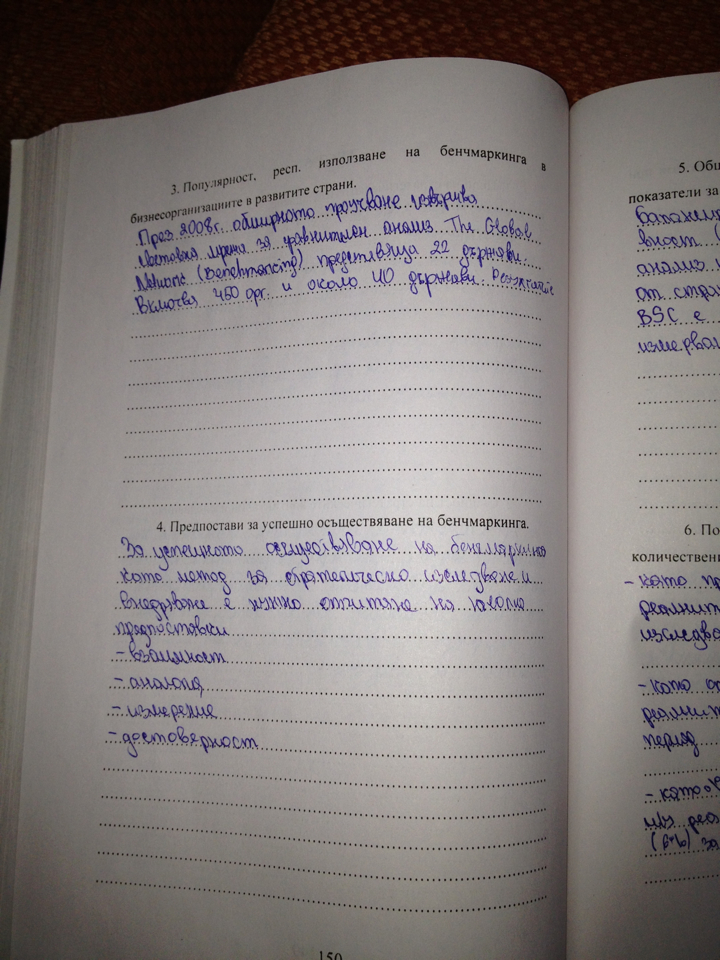 3. Популярност, респ. използване на бенчмаркинга в
бизнесорганизациите в развитите страни.
През 2008г. обширното проучване извършва
мрежа за сравнителен анализ The Global
Network (Benchmarking) представляваща 22 държави.
Включва 450 орг. и около 40 държави.
4. Предпостави за успешно осъществяване на бенчмаркинга.
За успешното осъществяване на бенчмаркинга
като метод за стратегическо изследване и
внедряване е нужно отчитане на няколко
предпоставки
- взаимност
- аналогия
- измерение
- достоверност
150
5. Общ
показатели за
вност (
анализ
от стра
BSC е
измерван
6. По
количествени
- като пр
реалнит
изследва
- като от
реалнит
период
- като
м/у реа
(б-ъ) за